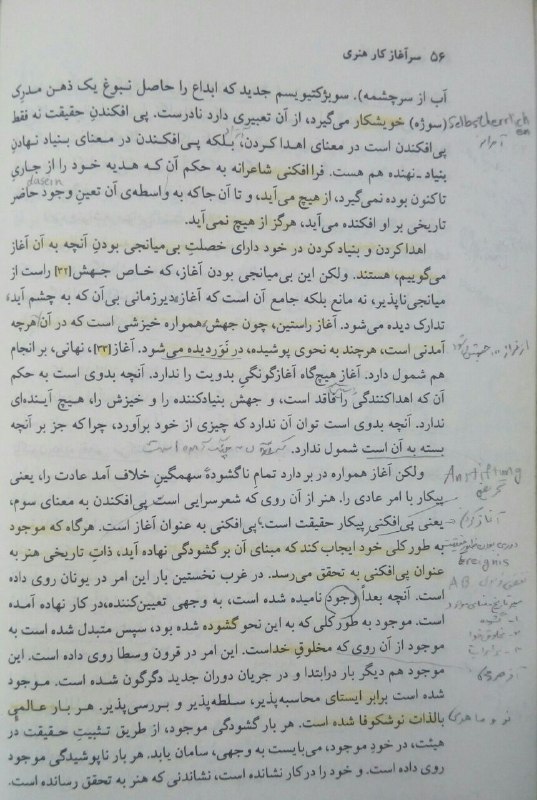 ۵۶ سرآغاز کار هنری
آب از سرچشمه). سوبژکتیویسم جدید که ابداع را حاصل نبوغ یک ذهن مدرِک
(سوژه) خویشکار می‌گیرد، از آن تعبیری دارد نادرست. پی افکندنِ حقیقت نه فقط
Selbstherrlich
پی‌افکندن است در معنای اهدا کردن، بلکه پی‌افکندن در معنای بنیاد نهادنِ
بنیاد-نهنده هم هست. فراافکنی شاعرانه به حکم آن که هدیه خود را از جاریِ
dasein
تاکنون بوده نمی‌گیرد، از هیچ می‌آید، و تا آن جا که به واسطه‌ی آن تعینِ وجود حاضر
تاریخی بر او افکنده می‌آید، هرگز از هیچ نمی‌آید.
اهدا کردن و بنیاد کردن در خود دارای خصلتِ بی‌میانجی بودنِ آنچه به آن آغاز
می‌گوییم، هستند. ولکن این بی‌میانجی بودن آغاز، که خاص جهش[۳۲] راست از
میانجی‌ناپذیر، نه مانع بلکه جامع آن است که آغاز دیرزمانی بی‌آن که به چشم آید،
تدارک دیده می‌شود. آغاز راستین، چون جهش همواره خیزشی است که در آن هرچه
آمدنی است، هرچند به نحوی پوشیده، در نَوَردیده می‌شود. آغاز[۳۳]، نهانی، بر انجام
هم شمول دارد. آغاز هیچ‌گاه آغازگونگیِ بدویت را ندارد. آنچه بدوی است به حکم
آن که اهداکنندگی را فاقد است، و جهش بنیادکننده را و خیزش را، هیچ آینده‌ای
ندارد. آنچه بدوی است توان آن ندارد که چیزی از خود برآورد، چرا که جز بر آنچه
بسته به آن است شمول ندارد.
ولکن آغاز همواره در بر دارد تمام ناگشودهٔ سهمگینِ خلاف آمد عادت را، یعنی
Anstiftung
پیکار با امر عادی را. هنر از آن روی که شعرسرایی است پی‌افکندن به معنای سوم،
یعنی پی‌افکنی پیکار حقیقت است؛ پی‌افکنی به عنوان آغاز است. هرگاه که موجود
به طور کلی خود ایجاب کند که مبنای آن بر گشودگی نهاده آید، ذاتِ تاریخی هنر به
Ereignis
عنوان پی‌افکنی به تحقق می‌رسد. در غرب نخستین بار این امر در یونان روی داده
است. آنچه بعداً وجود نامیده شده است، به وجهی تعیین‌کننده، در کار نهاده آمده
است. موجود به طور کلی که به این نحو گشوده شده بود، سپس متبدل شده است به
موجود از آن روی که مخلوق خداست. این امر در قرون وسطا روی داده است. این
موجود هم دیگر بار در ابتدا و در جریان دوران جدید دگرگون شده است. موجود
شده است برابر ایستای محاسبه‌پذیر، سلطه‌پذیر و بررسی‌پذیر. هر بار عالمی
بالذات نو شکوفا شده است. هر بار گشودگی موجود، از طریق تثبیتِ حقیقت در
هیئت، در خودِ موجود، می‌بایست به وجهی، سامان یابد. هر بار ناپوشیدگی موجود
روی داده است. و خود را در کار نشانده است، نشاندنی که هنر به تحقق رسانده است.